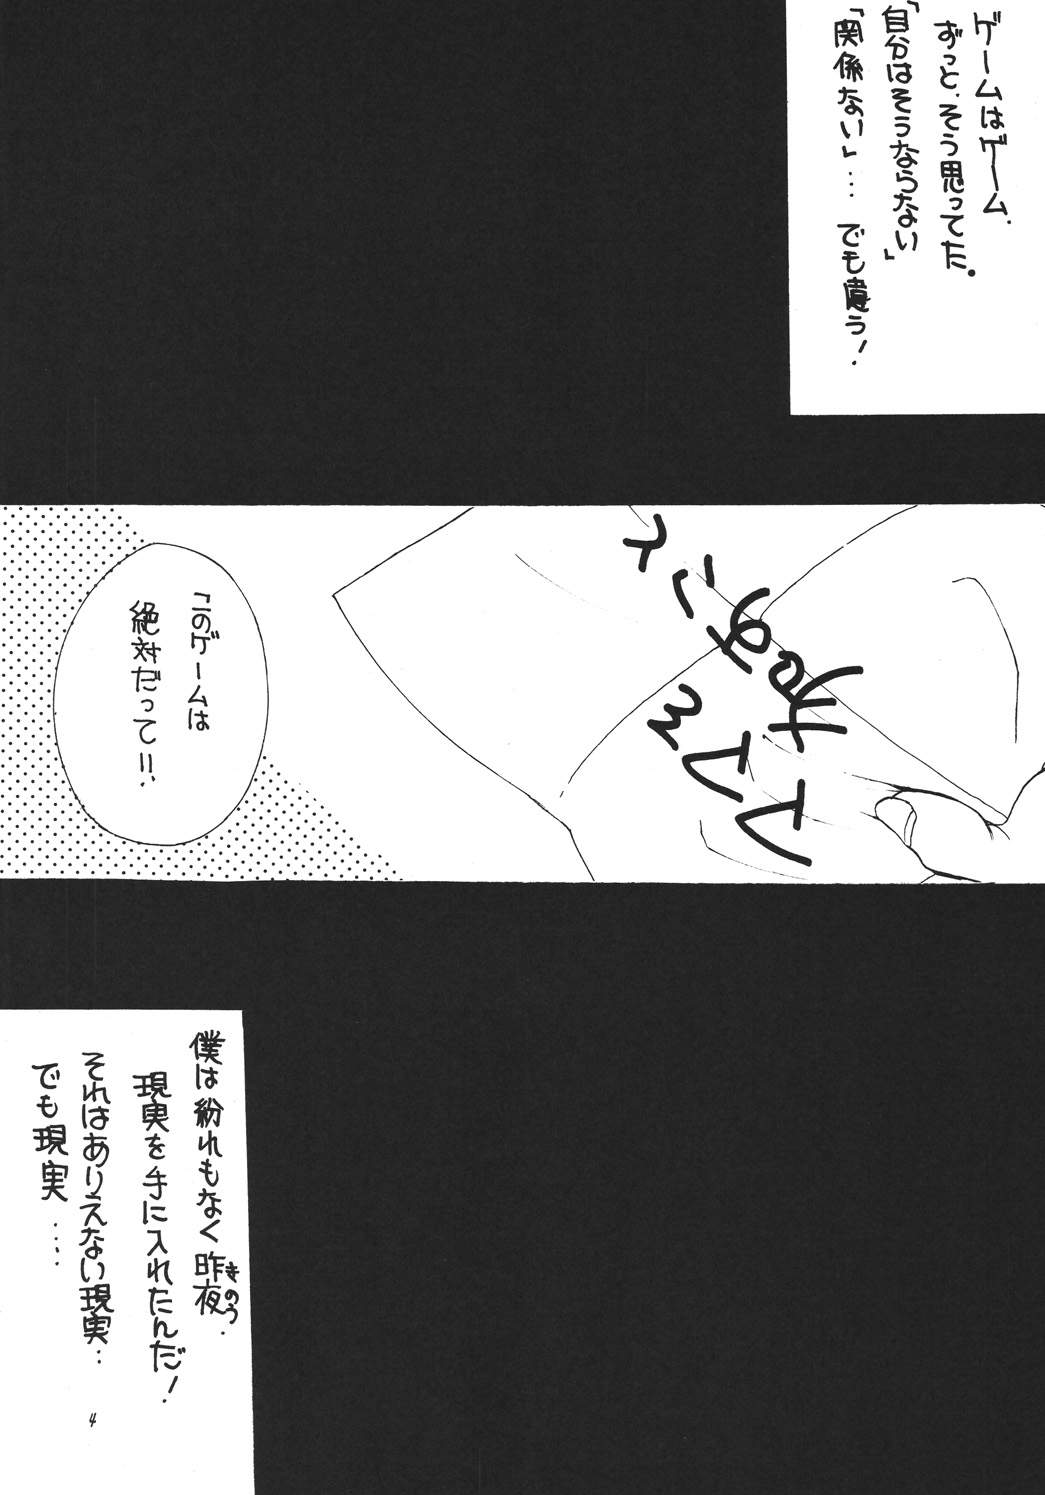 ゲームはゲーム、
ずっと、そう思ってた。
「自分はそうならない」
「関係ない」… でも違う!
「このゲームは
絶対だって!!、
僕は紛れもなく昨夜、
きのう
現実を手に入れたんだ!
それはありえない現実…
でも現実……
4